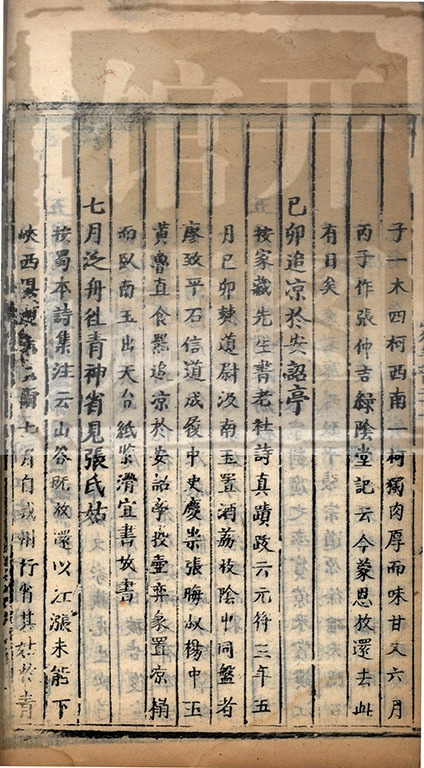 子一木四柯西南一柯獨肉厚而味甘又六月
丙子作張仲吉綠陰堂記云今蒙恩放還去此
有日矣
己卯追凉於安詔亭
按家藏先生書老杜詩真蹟跋云元符三年五
月己卯棘道尉汲南玉置酒荔枝陰中同盤者
廖致平石信道成履中史慶崇張晦叔楊中玉
黃魯直食罷追凉於安詔亭投壺弈象置凉榻
而臥南玉出天台紙緊滑宜書故書
七月泛舟徃青神省見張氏姑
按蜀本詩集注云山谷既放還以江漲未能下
峽西 七月自戎州行省其姑於青